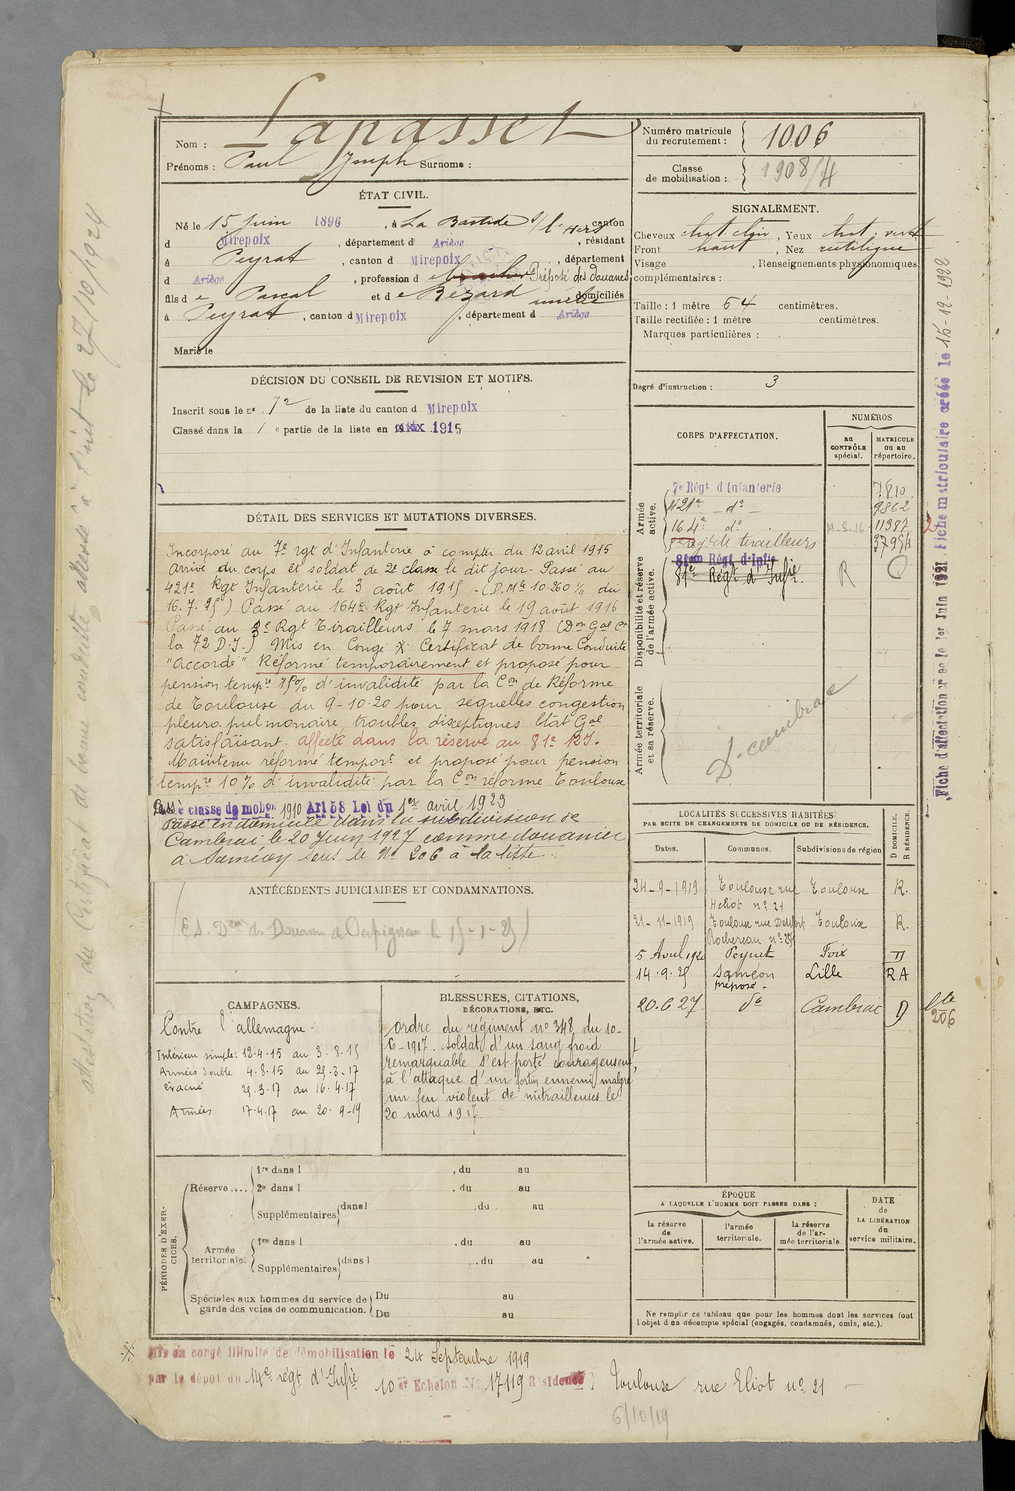 Nom : Lapasset
Prénoms : Paul Joseph Surnoms :
Numéro matricule du recrutement : 1006
Classe de mobilisation : 1908/4
ÉTAT CIVIL.
Né le 15 juin 1896, à La Bastide s/ l'Hers canton
d Mirepoix, département d Ariège, résidant
à Peyrat, canton d Mirepoix, département
d Ariège, profession d Préposé des douanes
fils de Pascal et de Bézard domiciliés
à Peyrat, canton d Mirepoix, département d Ariège
Marié le
SIGNALEMENT.
Cheveux chat. clair, Yeux chat. vert
Front haut, Nez rectiligne
Visage , Renseignements physionomiques
complémentaires :
Taille : 1 mètre 64 centimètres.
Taille rectifiée : 1 mètre centimètres.
Marques particulières :
Degré d'instruction : 3
DÉCISION DU CONSEIL DE REVISION ET MOTIFS.
Inscrit sous le n° 72 de la liste du canton d Mirepoix
Classé dans la 1 e partie de la liste en 1915
DÉTAIL DES SERVICES ET MUTATIONS DIVERSES.
Incorporé au 7e rgt d'Infanterie à compter du 12 avril 1915
Arrivé du corps et soldat de 2e classe le dit jour. Passé au
421e Rgt Infanterie le 3 août 1915 - (D.Mlle 10.260 1/4 du
16.7.15) Passé au 164e Rgt Infanterie le 19 août 1916
Passé au Rgt Tirailleurs le 7 mars 1918 (Don Gal Ct
la 72 D.I.) Mis en Congé ※ Certificat de bonne Conduite
"Accordé" Réformé temporairement et proposé pour
pension tempre 15% d'invalidité par la Con de Réforme
de Toulouse du 9-10-20 pour séquelles congestion
pleuro pulmonaire, troubles diseptiques Etat Gal
satisfaisant. affecté dans la réserve au 81e R.I.
Maintenu réformé temport et proposé pour pension
tempre 10% d'invalidité par la Con réforme Toulouse
classe de mobon 1910 Art 58 Loi du 1er avril 1923
Passé en domicile dans la subdivision de
Cambrai, le 20 Juin 1927 comme douanier
à Saméon sous le No 206 à la liste.
ANTÉCÉDENTS JUDICIAIRES ET CONDAMNATIONS.
CAMPAGNES.
Contre l'allemagne.
Intérieur simple : 12.4.15 au 3.8.15
Armées double 4.8.15 au 25.3.17
Evacué 25.3.17 au 16.4.17
Armées 17.4.17 au 20.9.19
BLESSURES, CITATIONS,
DÉCORATIONS, ETC.
Ordre du régiment n° 348 du 10-
6-1917. Soldat d'un sang froid
remarquable s'est porté courageusemt
à l'attaque d'un fortin ennemi malgré
un feu violent de mitrailleuses le
20 mars 1917.
PÉRIODES D'EXERCICES.
Réserve....
1re dans l , du au
2e dans l , du au
Supplémentaires dans l , du au
Armée territoriale.
1re dans l , du au
Supplémentaires dans l , du au
Spéciales aux hommes du service de garde des voies de communication.
Du au
Du au
CORPS D'AFFECTATION.
NUMÉROS
AU CONTRÔLE spécial.
MATRICULE OU AU répertoire.
Armée active.
7e Régt d'Infanterie 7810
421e do 9862
164e do 11387
Régt de tirailleurs
Disponibilité et réserve de l'armée active.
81eme Régt d'Infie
81e Régt d'Infie R
Armée territoriale et sa réserve.
LOCALITÉS SUCCESSIVES HABITÉES
PAR SUITE DE CHANGEMENTS DE DOMICILE OU DE RÉSIDENCE.
Dates. Communes. Subdivisions de région D DOMICILE. R RÉSIDENCE.
24-9-1919 Toulouse rue Héliot n° 21 Toulouse R.
21-11-1919 Toulouse rue Denfert Rochereau n° Toulouse R.
5 Avril 1920 Peyrat Foix D
14.9.25 Saméon préposé. Lille RA
20.6.27 do Cambrai D
206
ÉPOQUE
A LAQUELLE L'HOMME DOIT PASSER DANS :
la réserve de l'armée active.
l'armée territoriale.
la réserve de l'armée territoriale.
DATE DE LA LIBÉRATION du service militaire.
Ne remplir ce tableau que pour les hommes dont les services font
l'objet d'un décompte spécial (engagés, condamnés, omis, etc.).
※ Mis en congé illimité de démobilisation le 24 Septembre 1919
par le dépot du 14e régt d'Infie 10 er Echelon No 17119 Résidence Toulouse rue Eliot n° 21
6/10/19
Fiche matriculaire créée le 15-12-1922